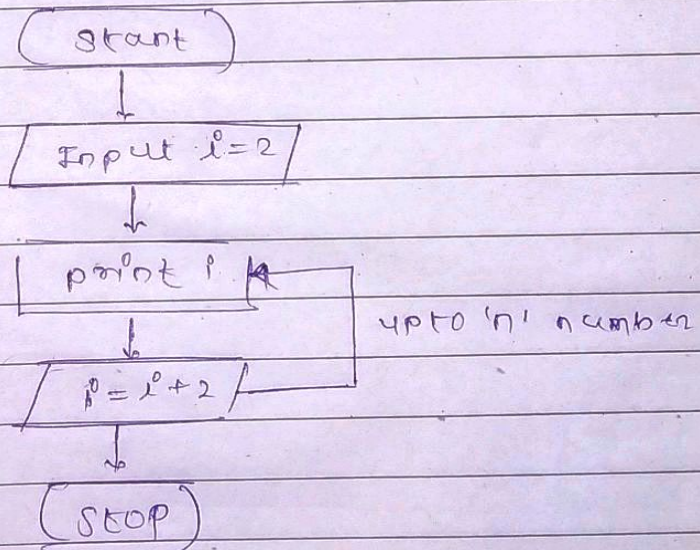 Start
Input i = 2
print i
upto 'n' number
i = i + 2
Stop